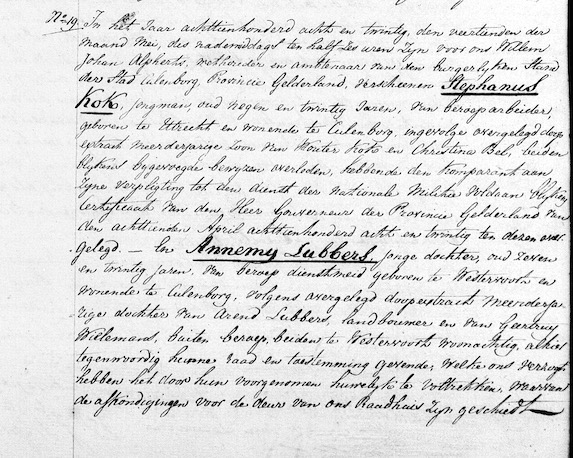 No 19. In het Jaar achttienhonderd acht en twintig, den veertienden der
maand Mei, des nademiddags ten half zes uren Zyn voor ons Willem
Johan Alpherts, wethouder en ambtenaar van den burgerlyken Stand
der Stad Culenborg, Provincie Gelderland, verscheenen Stephanus
Kok, jongman, oud negen en twintig Jaren, van beroep arbeider,
geboren te Uttrecht en wonende te Culenborg, ingevolge overgelegd doop
extract meerderjarige Zoon van Wouter Kok en Christina Bel, beiden
blykens bygevoegde bewyzen overleden, hebbende den Komparant aan
zyne verpligting tot den dienst der nationale Militie voldaan blykens
certificaat van den Heer Gouverneur der Provincie Gelderland van
den achttienden April achttienhonderd acht en twintig ten dezen over
gelegd. — En Annemy Lubbers, jonge dochter, oud Zeven
en twintig jaren, van beroep dienstmeid geboren te Westervoorth en
wonende te Culenborg, volgens overgelegd doopextract meerderja
rige dochter van Arend Lubbers, landbouwer en van Geertruy
Wielemans, buiten beroep, beiden te Westervoorth woonachtig, alhier
tegenwoordig hunne raad en toestemming gevende, welke ons verzogt
hebben het door hun voorgenomen huwelyk te voltrekken, waarvan
de afkondigingen voor de deur van ons Raadhuis Zyn geschiedt